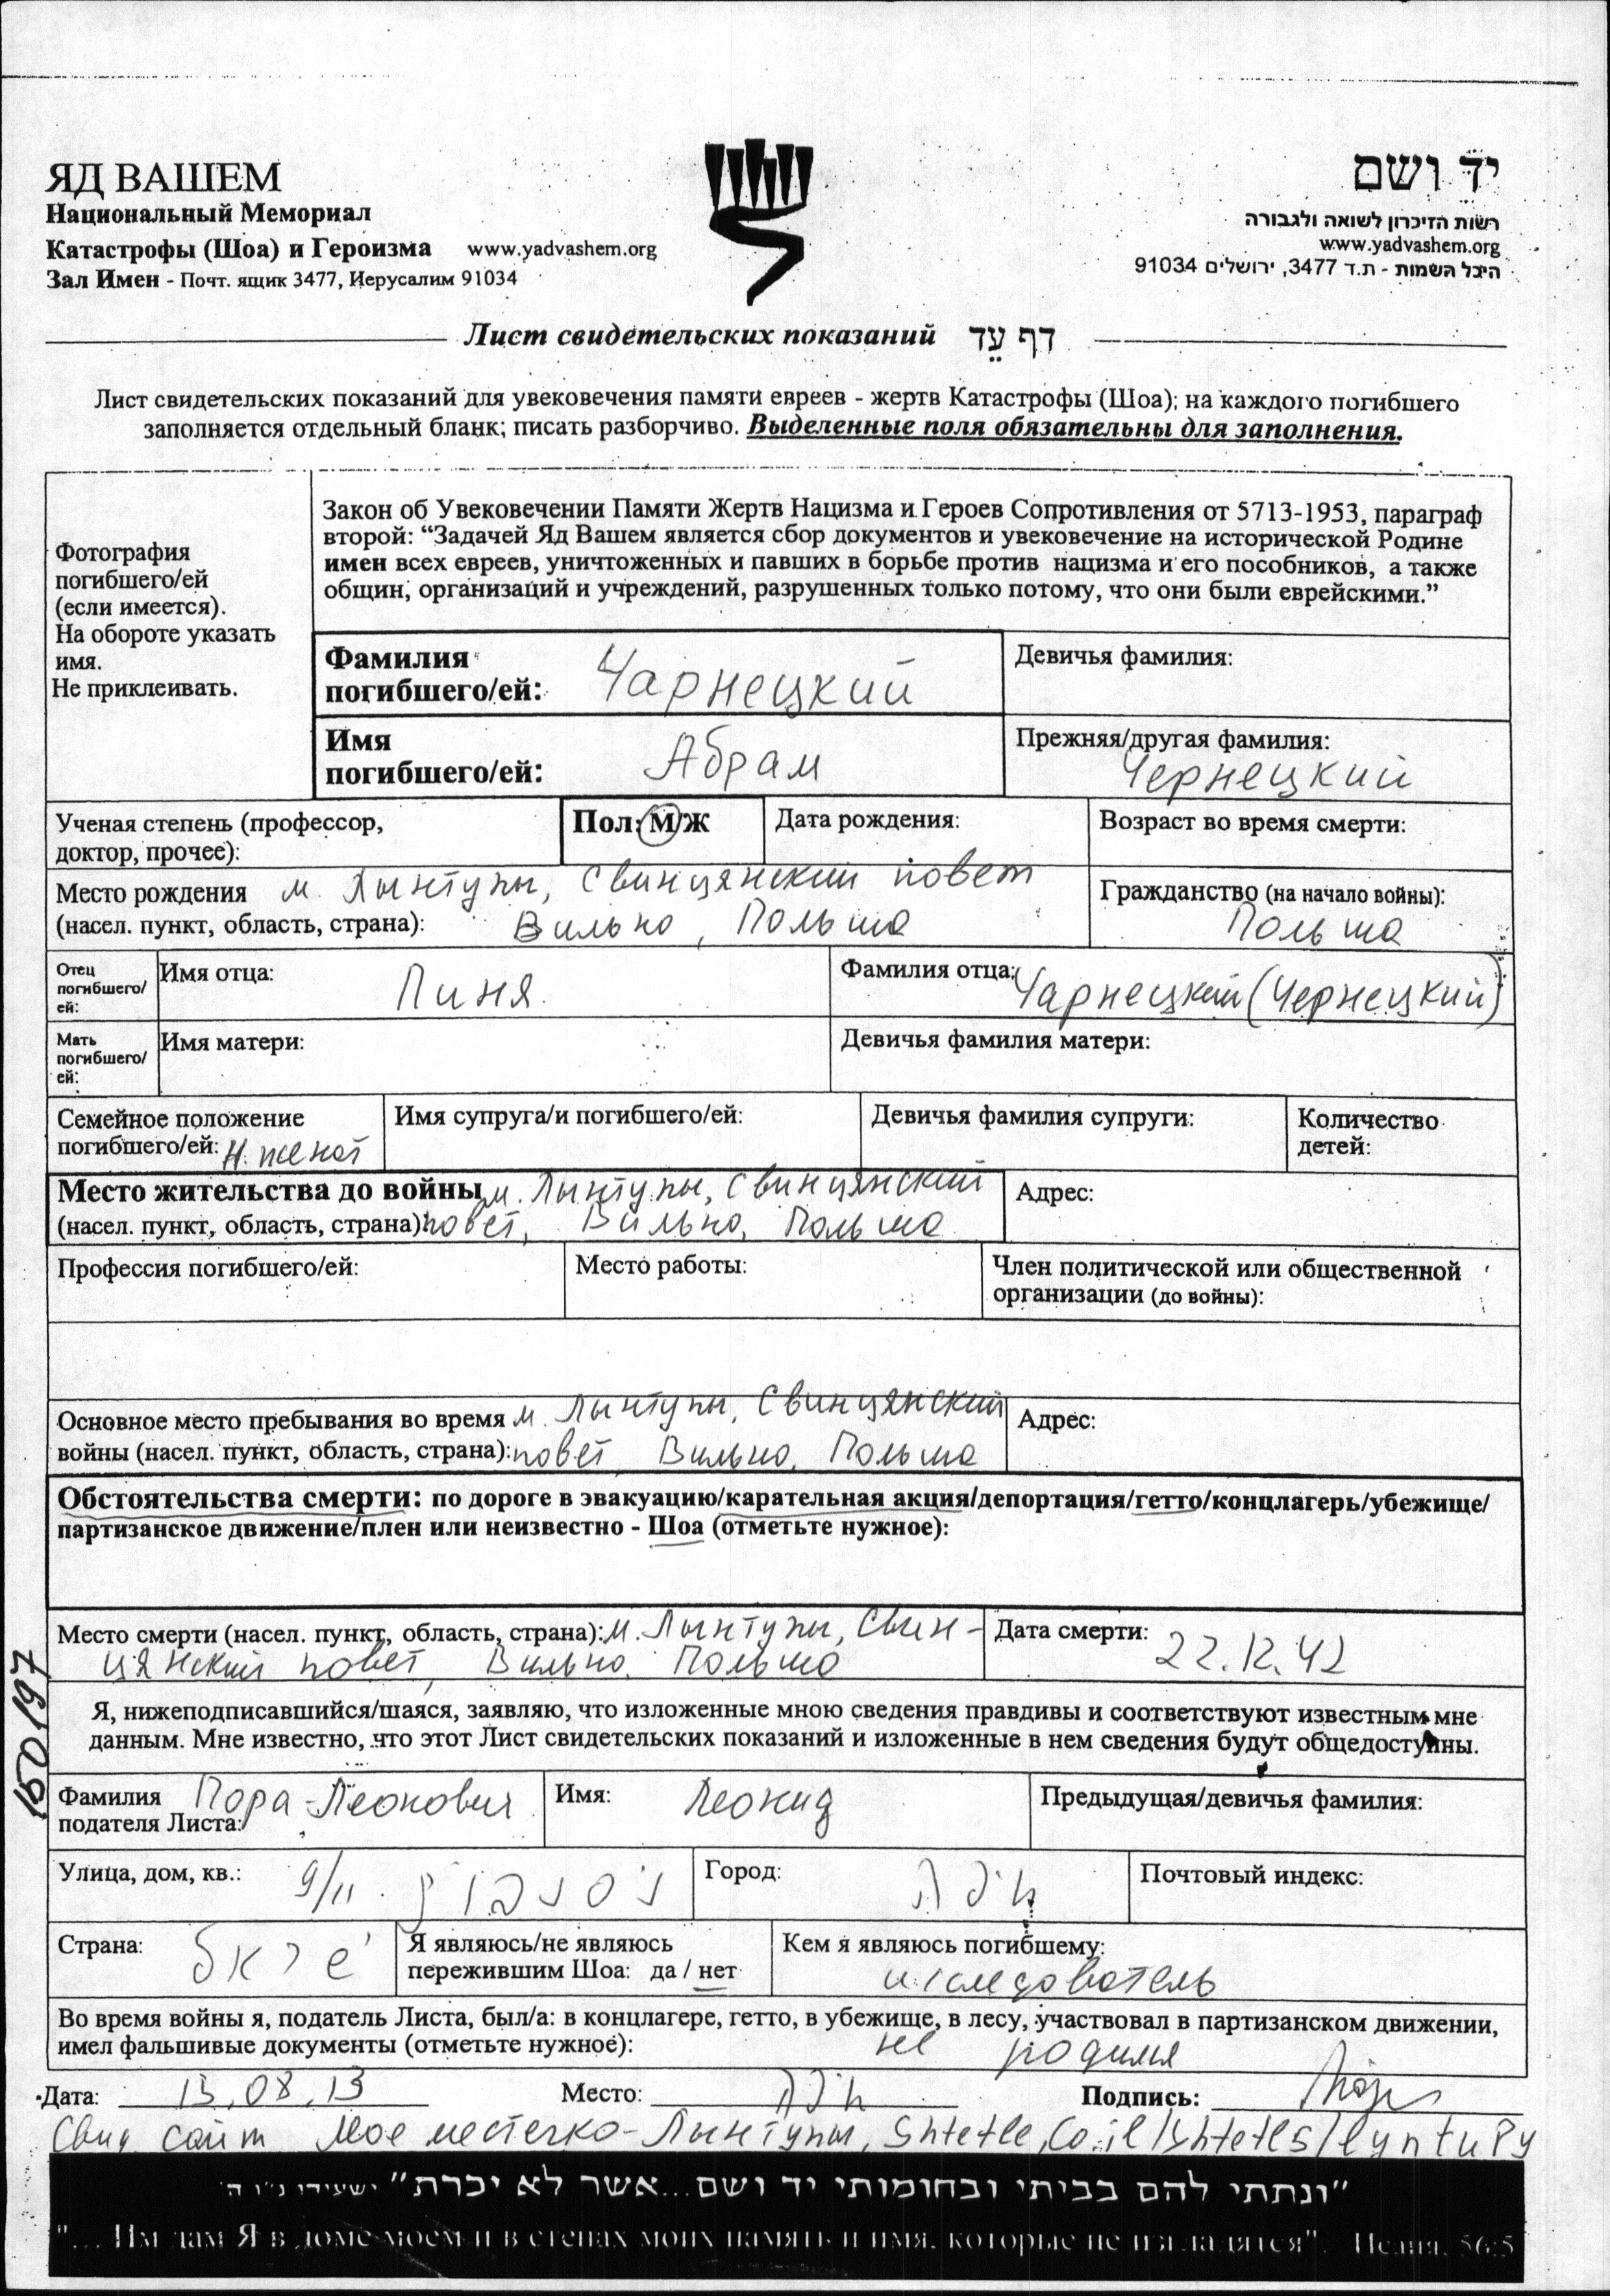 ЯД ВАШЕМ
Национальный Мемориал
Катастрофы (Шоа) и Героизма www.yadvashem.org
Зал Имен - Почт. ящик 3477, Иерусалим 91034
יד ושם
רשות הזיכרון לשואה ולגבורה
www.yadvashem.org
היכל השמות - ת.ד 3477, ירושלים 91034
Лист свидетельских показаний דף עֵד
Лист свидетельских показаний для увековечения памяти евреев - жертв Катастрофы (Шоа); на каждого погибшего
заполняется отдельный бланк; писать разборчиво. Выделенные поля обязательны для заполнения.
Фотография
погибшего/ей
(если имеется).
На обороте указать
имя.
Не приклеивать.
Закон об Увековечении Памяти Жертв Нацизма и Героев Сопротивления от 5713-1953, параграф
второй: “Задачей Яд Вашем является сбор документов и увековечение на исторической Родине
имен всех евреев, уничтоженных и павших в борьбе против нацизма и его пособников, а также
общин, организаций и учреждений, разрушенных только потому, что они были еврейскими.”
Фамилия
погибшего/ей: Чарнецкий
Девичья фамилия:
Имя
погибшего/ей: Абрам
Прежняя/другая фамилия:
Чернецкий
Ученая степень (профессор,
доктор, прочее):
Пол: М/Ж
Дата рождения:
Возраст во время смерти:
Место рождения м. Лынтупы, Свинцянский повет
(насел. пункт, область, страна): Вильно, Польша
Гражданство (на начало войны):
Польша
Отец
погибшего/
ей:
Имя отца: Пиня
Фамилия отца: Чарнецкий (Чернецкий)
Мать
погибшего/
ей:
Имя матери:
Девичья фамилия матери:
Семейное положение
погибшего/ей: Н. женат
Имя супруга/и погибшего/ей:
Девичья фамилия супруги:
Количество
детей:
Место жительства до войны м. Лынтупы, Свинцянский
(насел. пункт, область, страна): повет, Вильно, Польша
Адрес:
Профессия погибшего/ей:
Место работы:
Член политической или общественной
организации (до войны):
Основное место пребывания во время м. Лынтупы, Свинцянский
войны (насел. пункт, область, страна): повет Вильно, Польша
Адрес:
Обстоятельства смерти: по дороге в эвакуацию/карательная акция/депортация/гетто/концлагерь/убежище/
партизанское движение/плен или неизвестно - Шоа (отметьте нужное):
Место смерти (насел. пункт, область, страна): м. Лынтупы, Свин-
цянский повет, Вильно, Польша
Дата смерти: 22.12.42
150197
Я, нижеподписавшийся/шаяся, заявляю, что изложенные мною сведения правдивы и соответствуют известным мне
данным. Мне известно, что этот Лист свидетельских показаний и изложенные в нем сведения будут общедоступны.
Фамилия Пора-Леонович
подателя Листа:
Имя: Леонид
Предыдущая/девичья фамилия:
Улица, дом, кв.: 9/11
Город:
Почтовый индекс:
Страна:
Я являюсь/не являюсь
пережившим Шоа: да / нет
Кем я являюсь погибшему:
исследователь
Во время войны я, податель Листа, был/а: в концлагере, гетто, в убежище, в лесу, участвовал в партизанском движении,
имел фальшивые документы (отметьте нужное): не родился
Дата: 13.08.13
Место:
Подпись:
сайт Мое местечко-Лынтупы, Shtetle.Co.il/shtetls/lyntupy
"ונתתי להם בביתי ובחומותי יד ושם...אשר לא יכרת" ישעיהו נ"ו ה'
"... Им дам Я в доме моем и в стенах моих память и имя, которые не изгладятся". Исаия, 56:5